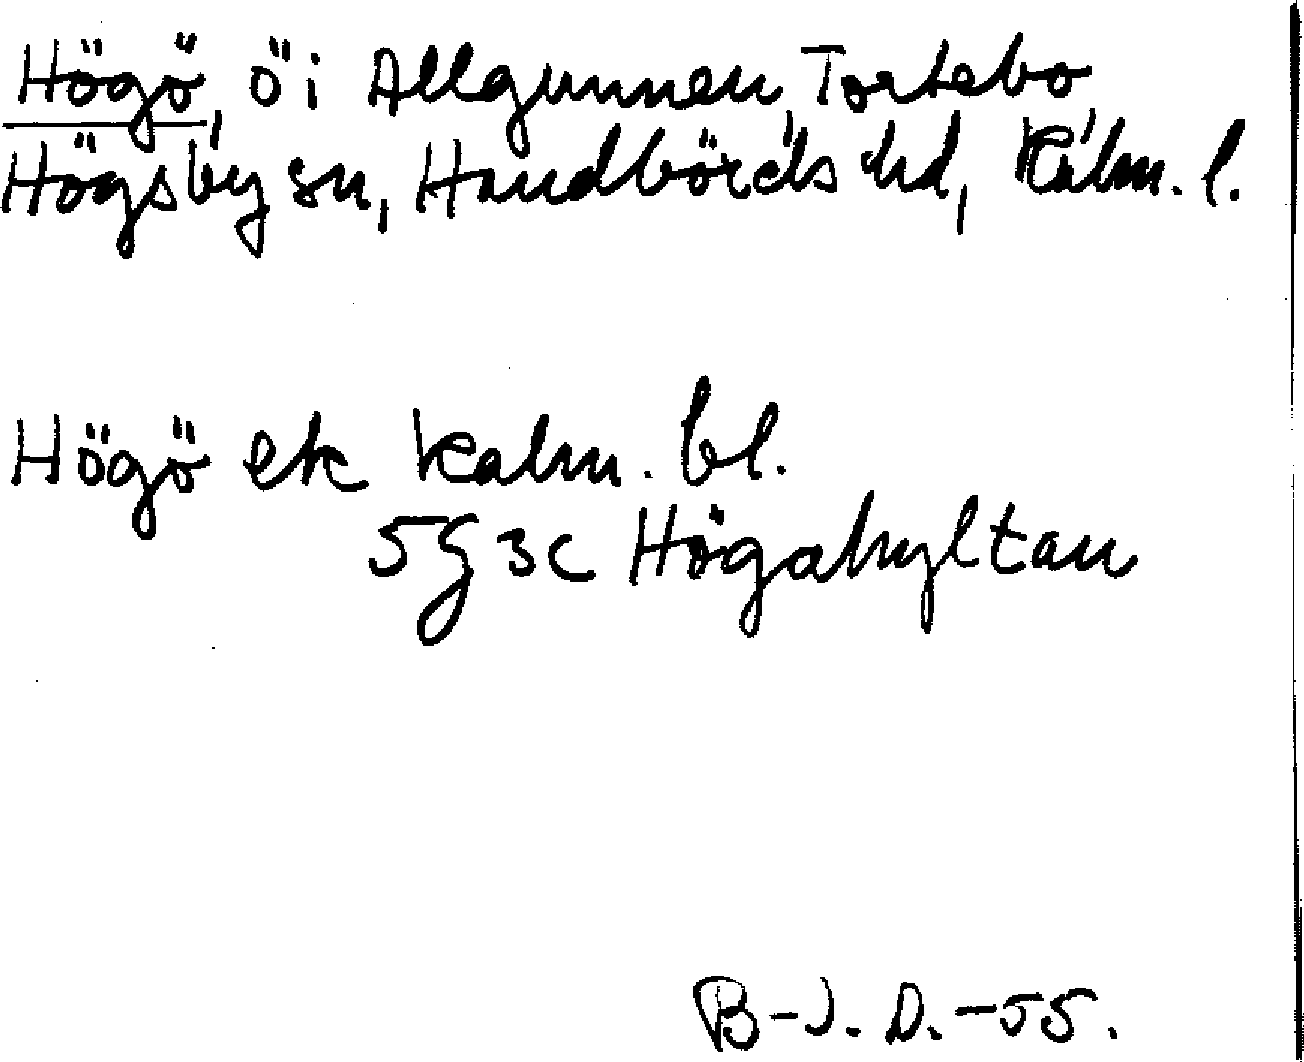 Högö, ö i Allgunnen, Tortebo,
Högsby sn, Handbörds hd, Kalm. l.
Högö ek Kalm. bl.
5g 3c Högahyltan
B-J. D. -55.